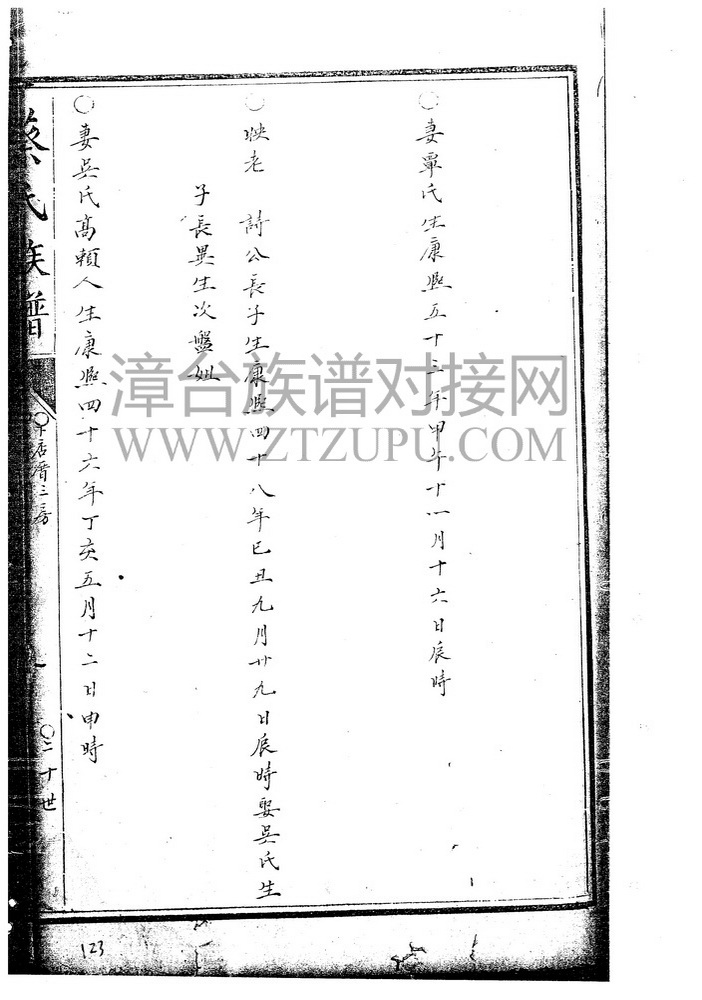 ○妻覃氏生康熙五十三年甲午十一月十六日辰時
○映老 詩公長子生康熙四十八年己丑九月廿九日辰時娶吳氏生
子長異生次盤姐
○妻吳氏高頼人生康熙四十六年丁亥五月十二日申時
蔡氏族譜
○下店厝三房
○二十世
123
漳台族谱对接网
WWW.ZTZUPU.COM